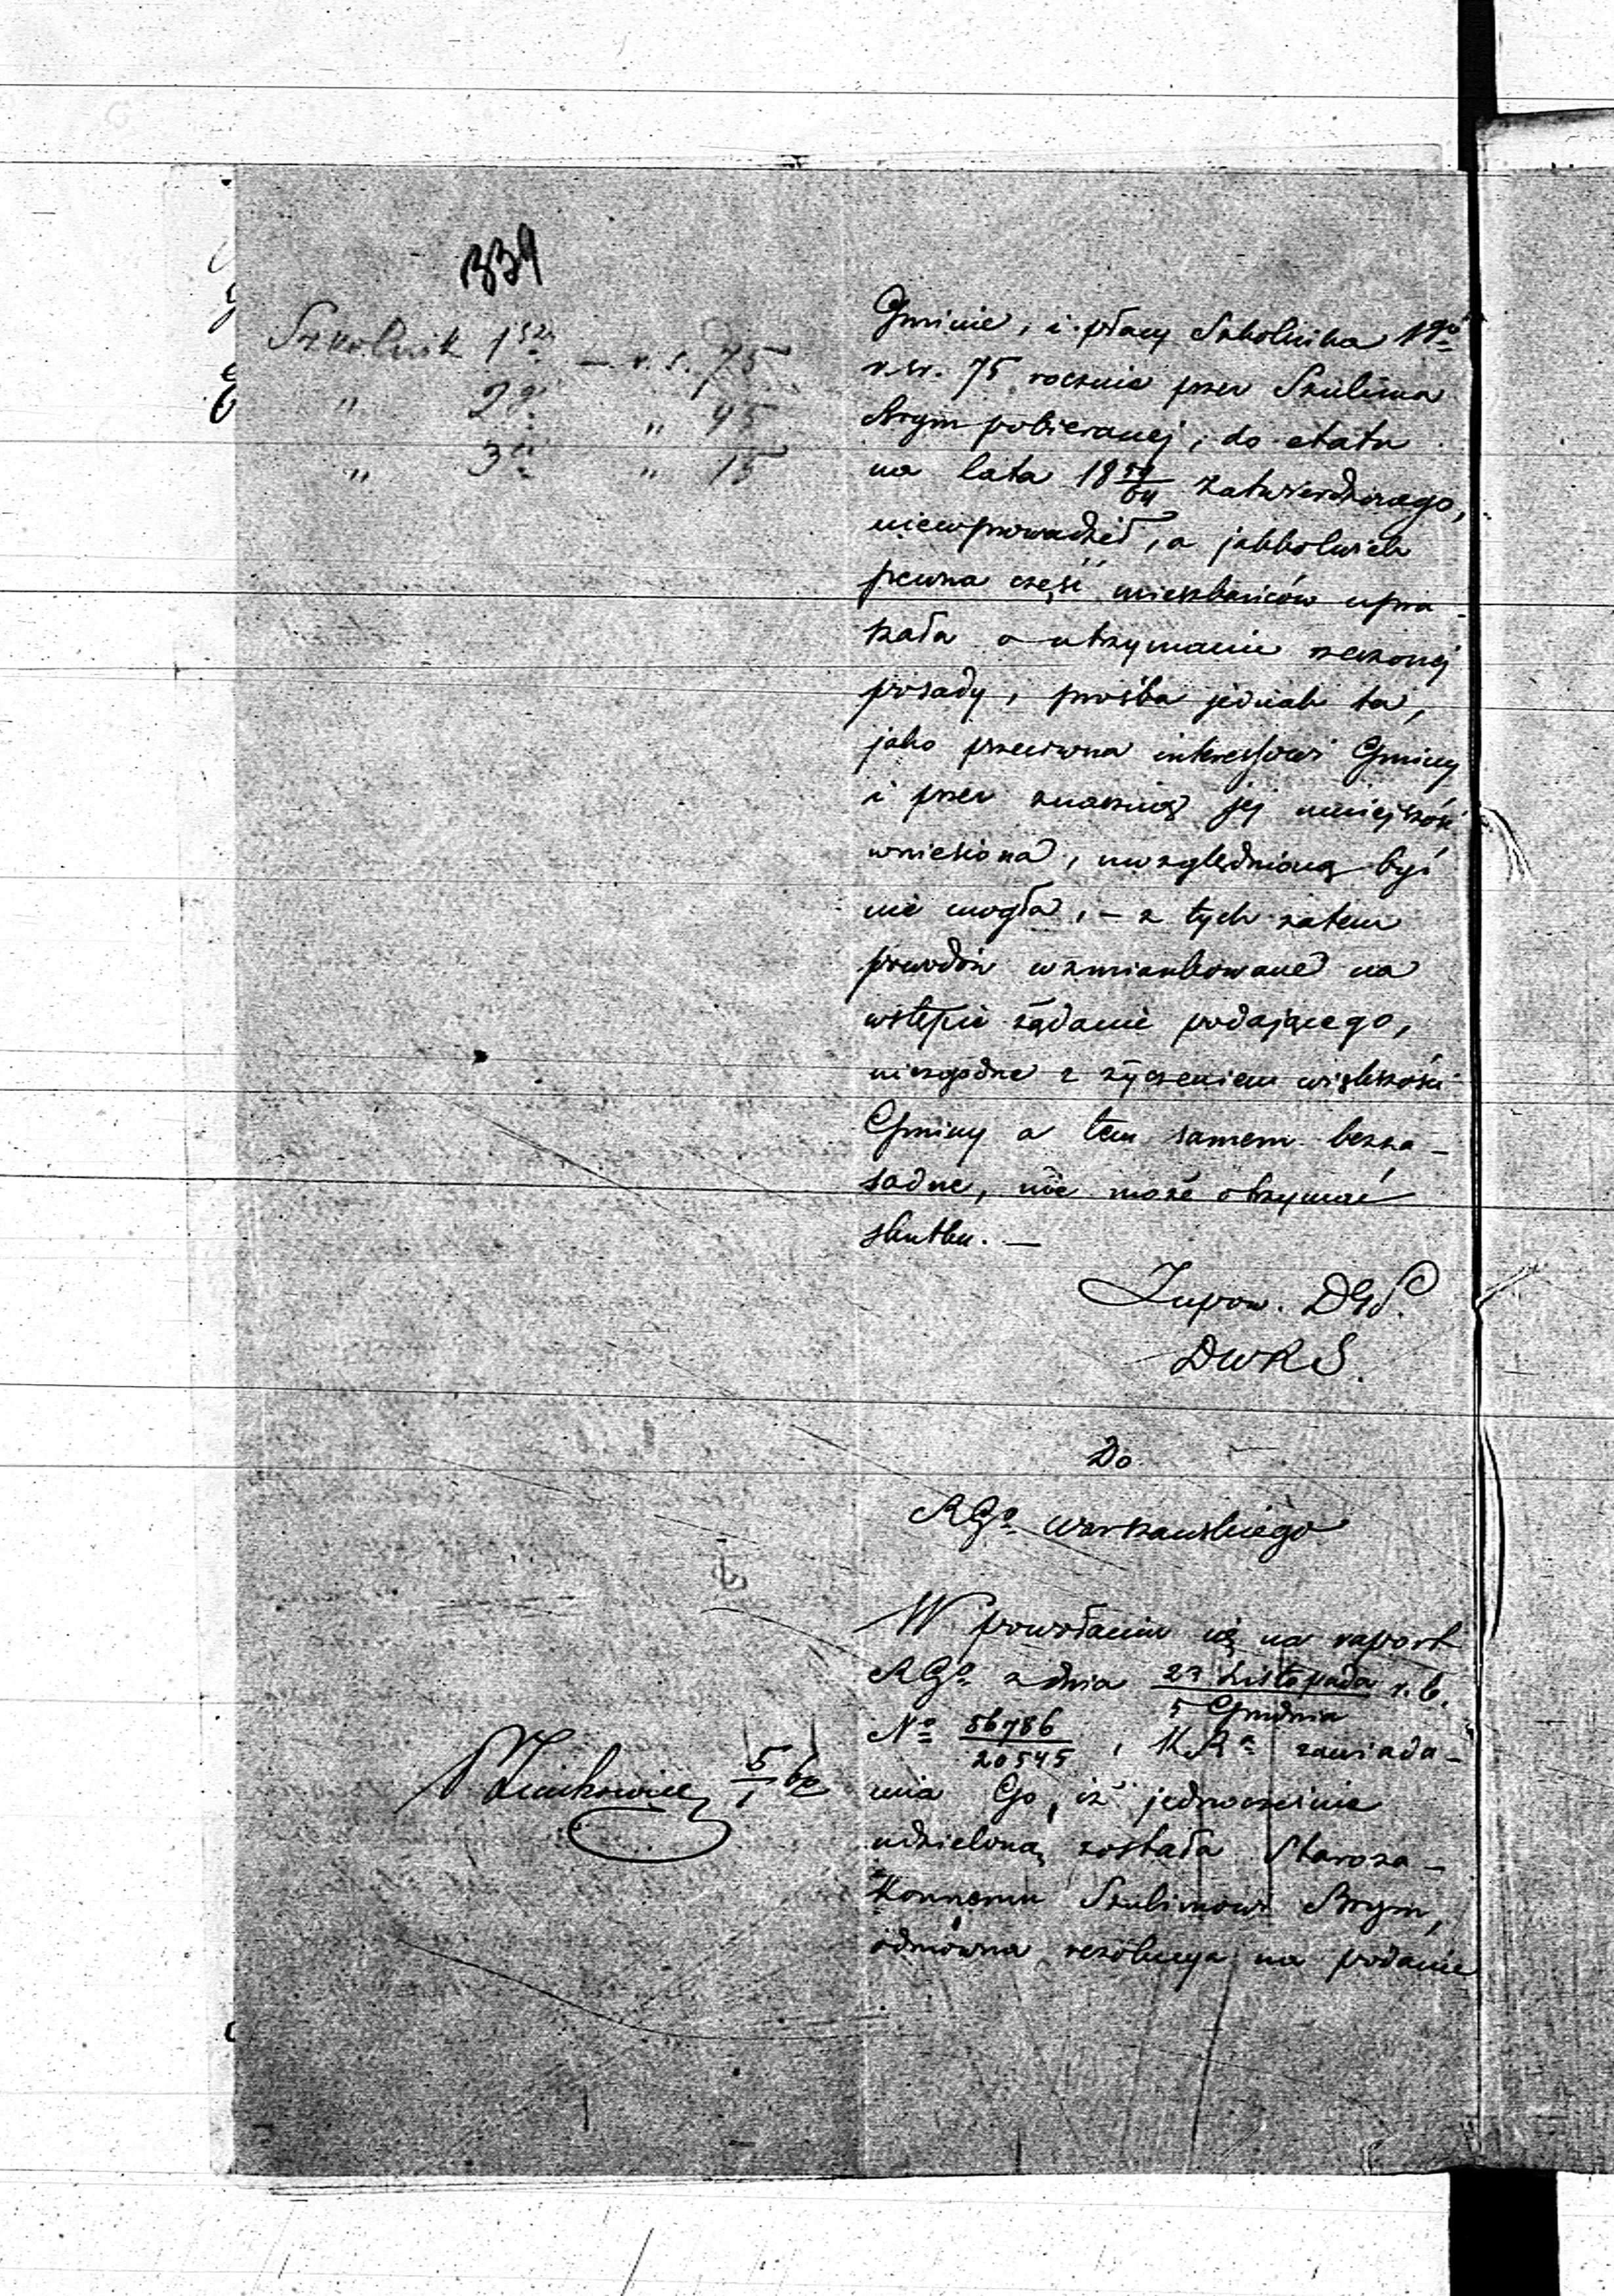 339
Szkolnik 1szy — r. s. 75
„ 2gi „ 45
„ 3ci „ 15
Gminie, i płacy Szkolnika 1go
r. sr. 75 rocznie przez Szulima
Brym pobieranej, do etatu
na lata 18 59/64 zatwierdzonego,
niewprowadził, a jakkolwiek
pewna część mieszkańców upra-
szała o utrzymanie rzeczonej
posady, prośba jednak ta,
jako przeciwna interessowi Gminy
i przez znaczną jej mniejszość
wniesiona, uwzględnioną być
nie mogła, – z tych zatem
powodów wzmiankowane na
wstępie żądanie podającego,
niezgodne z życzeniem większości
Gminy a tem samem bezza-
sadne, nie może otrzymać
skutku. —
Zupow. DGł.
DWRS.
Do
RGo Warszawskiego
W powołaniu się na raport
RGo z dnia 23 Listopada / 5 Grudnia r. b.
No 56786/20545, KRa zawiada-
mia Go, iż jednocześnie
udzieloną została Staroza-
konnemu Szulimowi Brym,
odmówna rezolucya na podanie
5/1 60